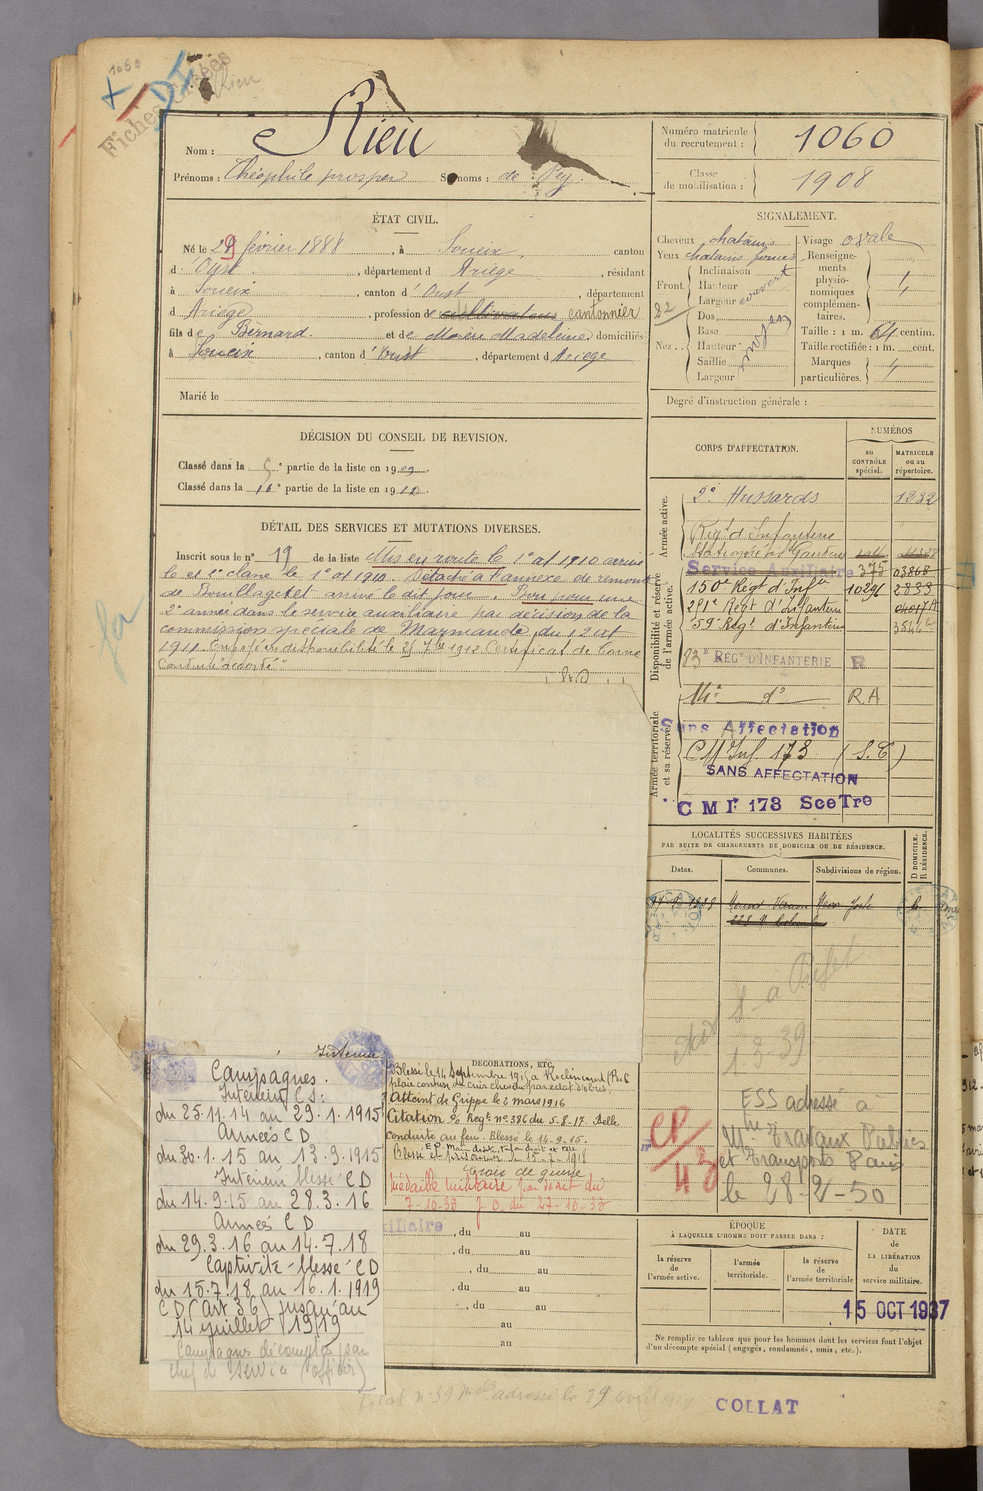 1060
Fichesées
Rieu
Nom : Rieu
Prénoms : Théophile prosper Surnoms : de Pey.
Numéro matricule du recrutement : 1060
Classe de mobilisation : 1908
ÉTAT CIVIL.
Né le 29 février 1888, à Soueix, canton
d'Oust, département d Ariège, résidant
à Soueix, canton d'Oust, département
d Ariège, profession de cultivateur cantonnier
fils de Bernard et de Madeleine domiciliés
à Soueix, canton d'Oust, département d Ariège
Marié le
SIGNALEMENT.
Cheveux chatains
Yeux chatains
Front.
Inclinaison
Hauteur
Largeur
Nez..
Dos
Base
Hauteur
Saillie
Largeur
moyen
Visage ovale
Renseignements physionomiques complémentaires.
Taille : 1 m. 64 centim.
Taille rectifiée : 1 m. cent.
Marques particulières.
Degré d'instruction générale :
DÉCISION DU CONSEIL DE REVISION.
Classé dans la 5e partie de la liste en 1909.
Classé dans la 1e partie de la liste en 1910.
DÉTAIL DES SERVICES ET MUTATIONS DIVERSES.
Inscrit sous le n° 19 de la liste Mis en route le 1er 8bre 1910 arrivé
le et 2e classe le 1er 8bre 1910. Détaché à l'annexe de remonte
de et arrivé le dit jour.
2e année dans le service auxiliaire par décision de la
commission spéciale de Marmande du 12
1911. en disponibilité le 25 7bre 1912 Certificat de bonne
Conduite "accordé"
CORPS D'AFFECTATION.
NUMÉROS
AU CONTRÔLE spécial.
MATRICULE ou au répertoire.
Armée active.
2e Hussards 1232
Disponibilité et réserve de l'armée active.
Regt d'Infanterie
Service Auxiliaire 375 03868
150e Regt d'Infie 10291 2833
281e Regt d'Infanterie
59e Regt d'Infanterie 3546
83e REGT D'INFANTERIE R
Armée territoriale et sa réserve.
R.A
Sans Affectation
CM Inf. 173 (S.T)
SANS AFFECTATION
CMI 173 Sce Tre
LOCALITÉS SUCCESSIVES HABITÉES
PAR SUITE DE CHANGEMENTS DE DOMICILE OU DE RÉSIDENCE.
Dates.
Communes.
Subdivisions de région.
D DOMICILE. R RÉSIDENCE.
1928 Mount Vernon New York
1.3.39
ESS adressé à
Mre Travaux Publics
et Transports Paris
le 28-2-50
CP/43
Campagnes.
Intérieur CS :
du 25.11.14 au 29.1.1915
Armées CD
du 30.1.15 au 13.9.1915
Intérieur blessé CD
du 14.9.15 au 28.3.16
Armées CD
du 29.3.16 au 14.7.18
Captivité-blessé CD
du 15.7.18 au 16.1.1919
CD (art 36) jusqu'au
14 juillet 1919
Campagnes décomptées par
chef de service (officier)
DÉCORATIONS, ETC.
Blessé le 14 Septembre 1915 à Roclincourt
Atteint de Grippe le 2 mars 1916
Citation O. Regt n° 386 du 5-8-17. Belle
conduite au feu. Blessé le 14-9-15.
Croix de guerre
Médaille militaire par décret du
7-10-38 J.O. du 27-10-38
xiliaire, du au
, du au
, du au
, du au
, du au
au
au
ÉPOQUE
À LAQUELLE L'HOMME DOIT PASSER DANS :
la réserve de l'armée active.
l'armée territoriale.
la réserve de l'armée territoriale
DATE de LA LIBÉRATION du service militaire.
15 OCT 1937
Ne remplir ce tableau que pour les hommes dont les services font l'objet
d'un décompte spécial (engagés, condamnés, omis, etc.).
adressé le 29 avril
COLLAT